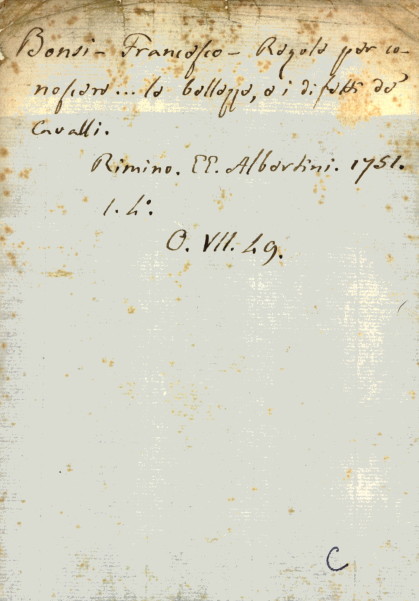 Bonsi - Francesco - Regole per co-
noscere... le bellezze, e i difetti de'
Cavalli.
Rimino. EE. Albertini. 1751.
1. 4°.
O. VII. 49.
C